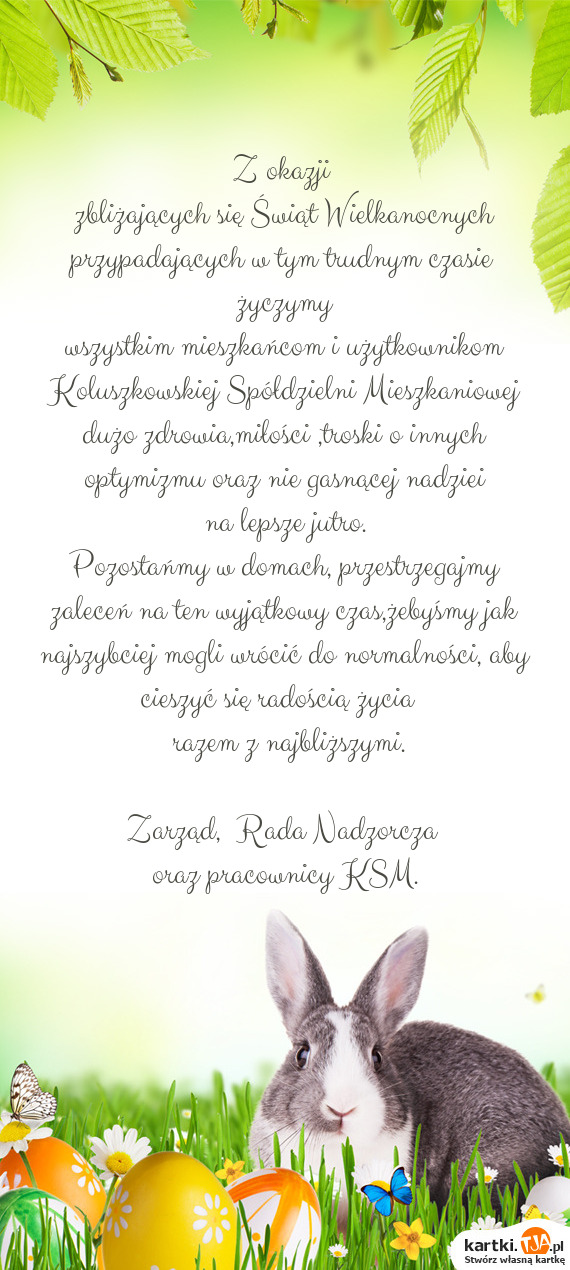 Z okazji
zbliżających się Świąt Wielkanocnych
przypadających w tym trudnym czasie
życzymy
wszystkim mieszkańcom i użytkownikom
Koluszkowskiej Spółdzielni Mieszkaniowej
dużo zdrowia,miłości ,troski o innych
optymizmu oraz nie gasnącej nadziei
na lepsze jutro.
Pozostańmy w domach, przestrzegajmy
zaleceń na ten wyjątkowy czas,żebyśmy jak
najszybciej mogli wrócić do normalności, aby
cieszyć się radością życia
razem z najbliższymi.
Zarząd, Rada Nadzorcza
oraz pracownicy KSM.
kartki.TJA.pl
Stwórz własną kartkę